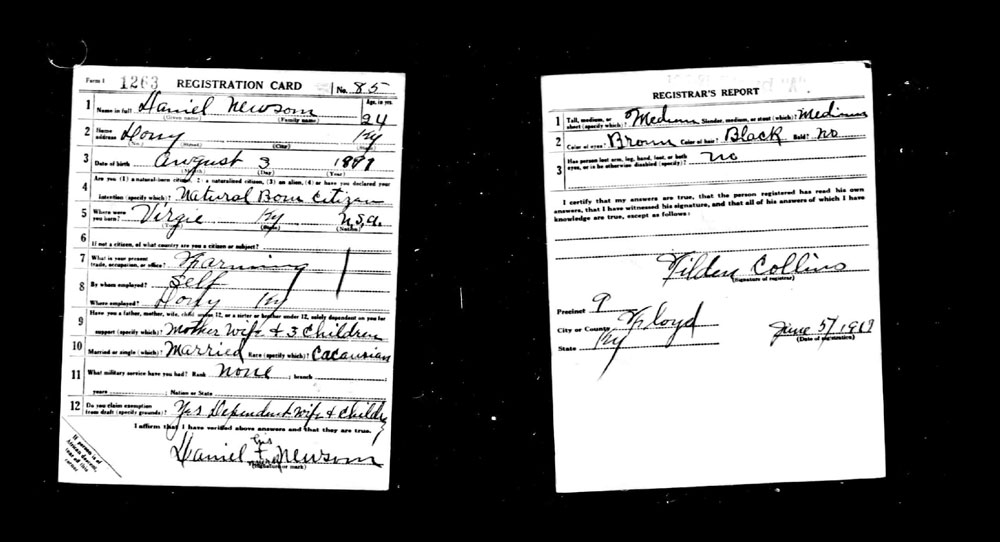 Form 1 1263 REGISTRATION CARD No. 85
1 Name in full Daniel Newsom Age, in yrs. 24
(Given name) (Family name)
2 Home address Dony Ky
(No.) (Street) (City) (State)
3 Date of birth August 3
(Month) (Day) (Year)
4 Are you (1) a natural-born citizen, (2) a naturalized citizen, (3) an alien, (4) or have you declared your
intention (specify which)? Natural Born Citizen
5 Where were you born? Virgie Ky U.S.A.
(Town) (State) (Nation)
6 If not a citizen, of what country are you a citizen or subject?
7 What is your present trade, occupation, or office? Farming
8 By whom employed? Self
Where employed? Dony Ky
9 Have you a father, mother, wife, child under 12, or a sister or brother under 12, solely dependent on you for
support (specify which)? Mother Wife + 3 Children
10 Married or single (which)? Married Race (specify which)? Cacausian
11 What military service have you had? Rank None ; branch ;
years ; Nation or State
12 Do you claim exemption from draft (specify grounds)? Yes Dependent Wife + Children
I affirm that I have verified above answers and that they are true.
his
Daniel + Newsom
mark
(Signature or mark)
If person is of African descent, tear off this corner
REGISTRAR'S REPORT
1 Tall, medium, or short (specify which)? Medium Slender, medium, or stout (which)? Medium
2 Color of eyes? Brown Color of hair? Black Bald? No
3 Has person lost arm, leg, hand, foot, or both eyes, or is he otherwise disabled (specify)? no
I certify that my answers are true, that the person registered has read his own
answers, that I have witnessed his signature, and that all of his answers of which I have
knowledge are true, except as follows:
Tilden Collins
(Signature of registrar)
Precinct 9
City or County Floyd
State Ky
June 5/1917
(Date of registration)